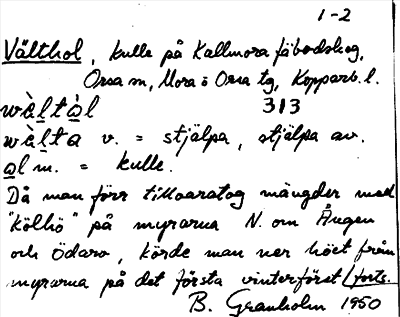 1-2
Välthol, kulle på Kallmora fäbodskog,
Orsa sn, Mora o Orsa tg, Kopparb. l.
wàltàl 313
wàlta v. = stjälpa, stjälpa av.
ɑl m. = kulle.
Då man förr tillvaratog mängder med
"kölhö" på myrarna N. om Ången
och Ödarv, körde man ner höet från
myrarna på det första vinterföret /forts.
B. Granholm 1950